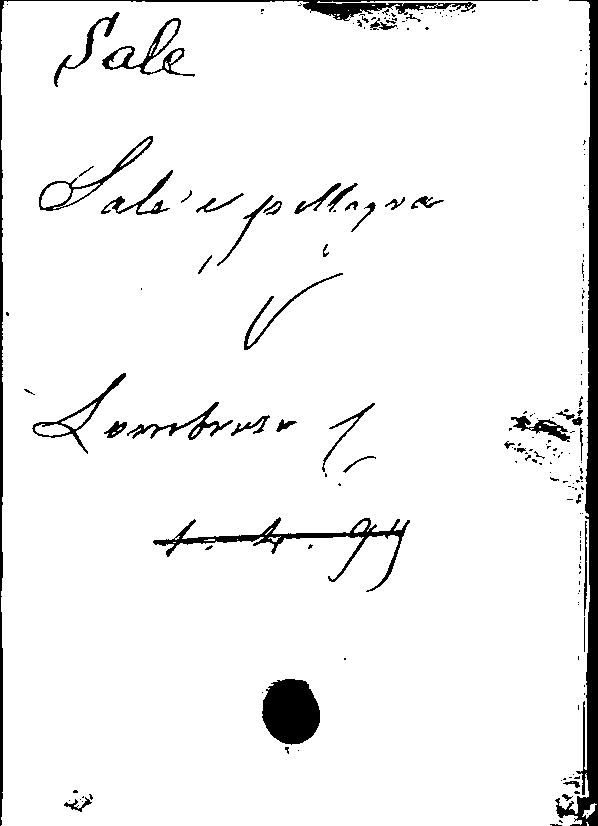 Sale
Sale e pellagra
V
Lombroso C.
1. 4. 94